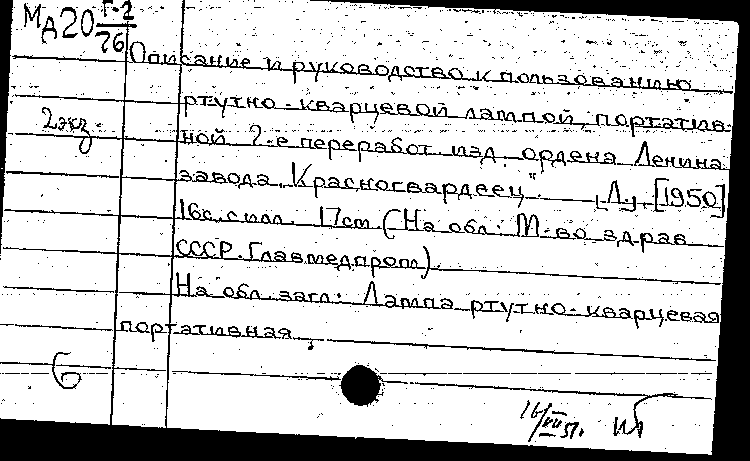 МА20 Г-2/76
Описание и руководство к пользованию
ртутно-кварцевой лампой, портатив-
2 экз.
ной 2-е переработ. изд. ордена Ленина
завода „Красногвардеец". Л., [1950]
16с. с илл. 17см. (На обл: М-во здрав.
СССР. Главмедпром).
На обл. загл: Лампа ртутно-кварцевая
портативная.
Б
16/VII 51г.